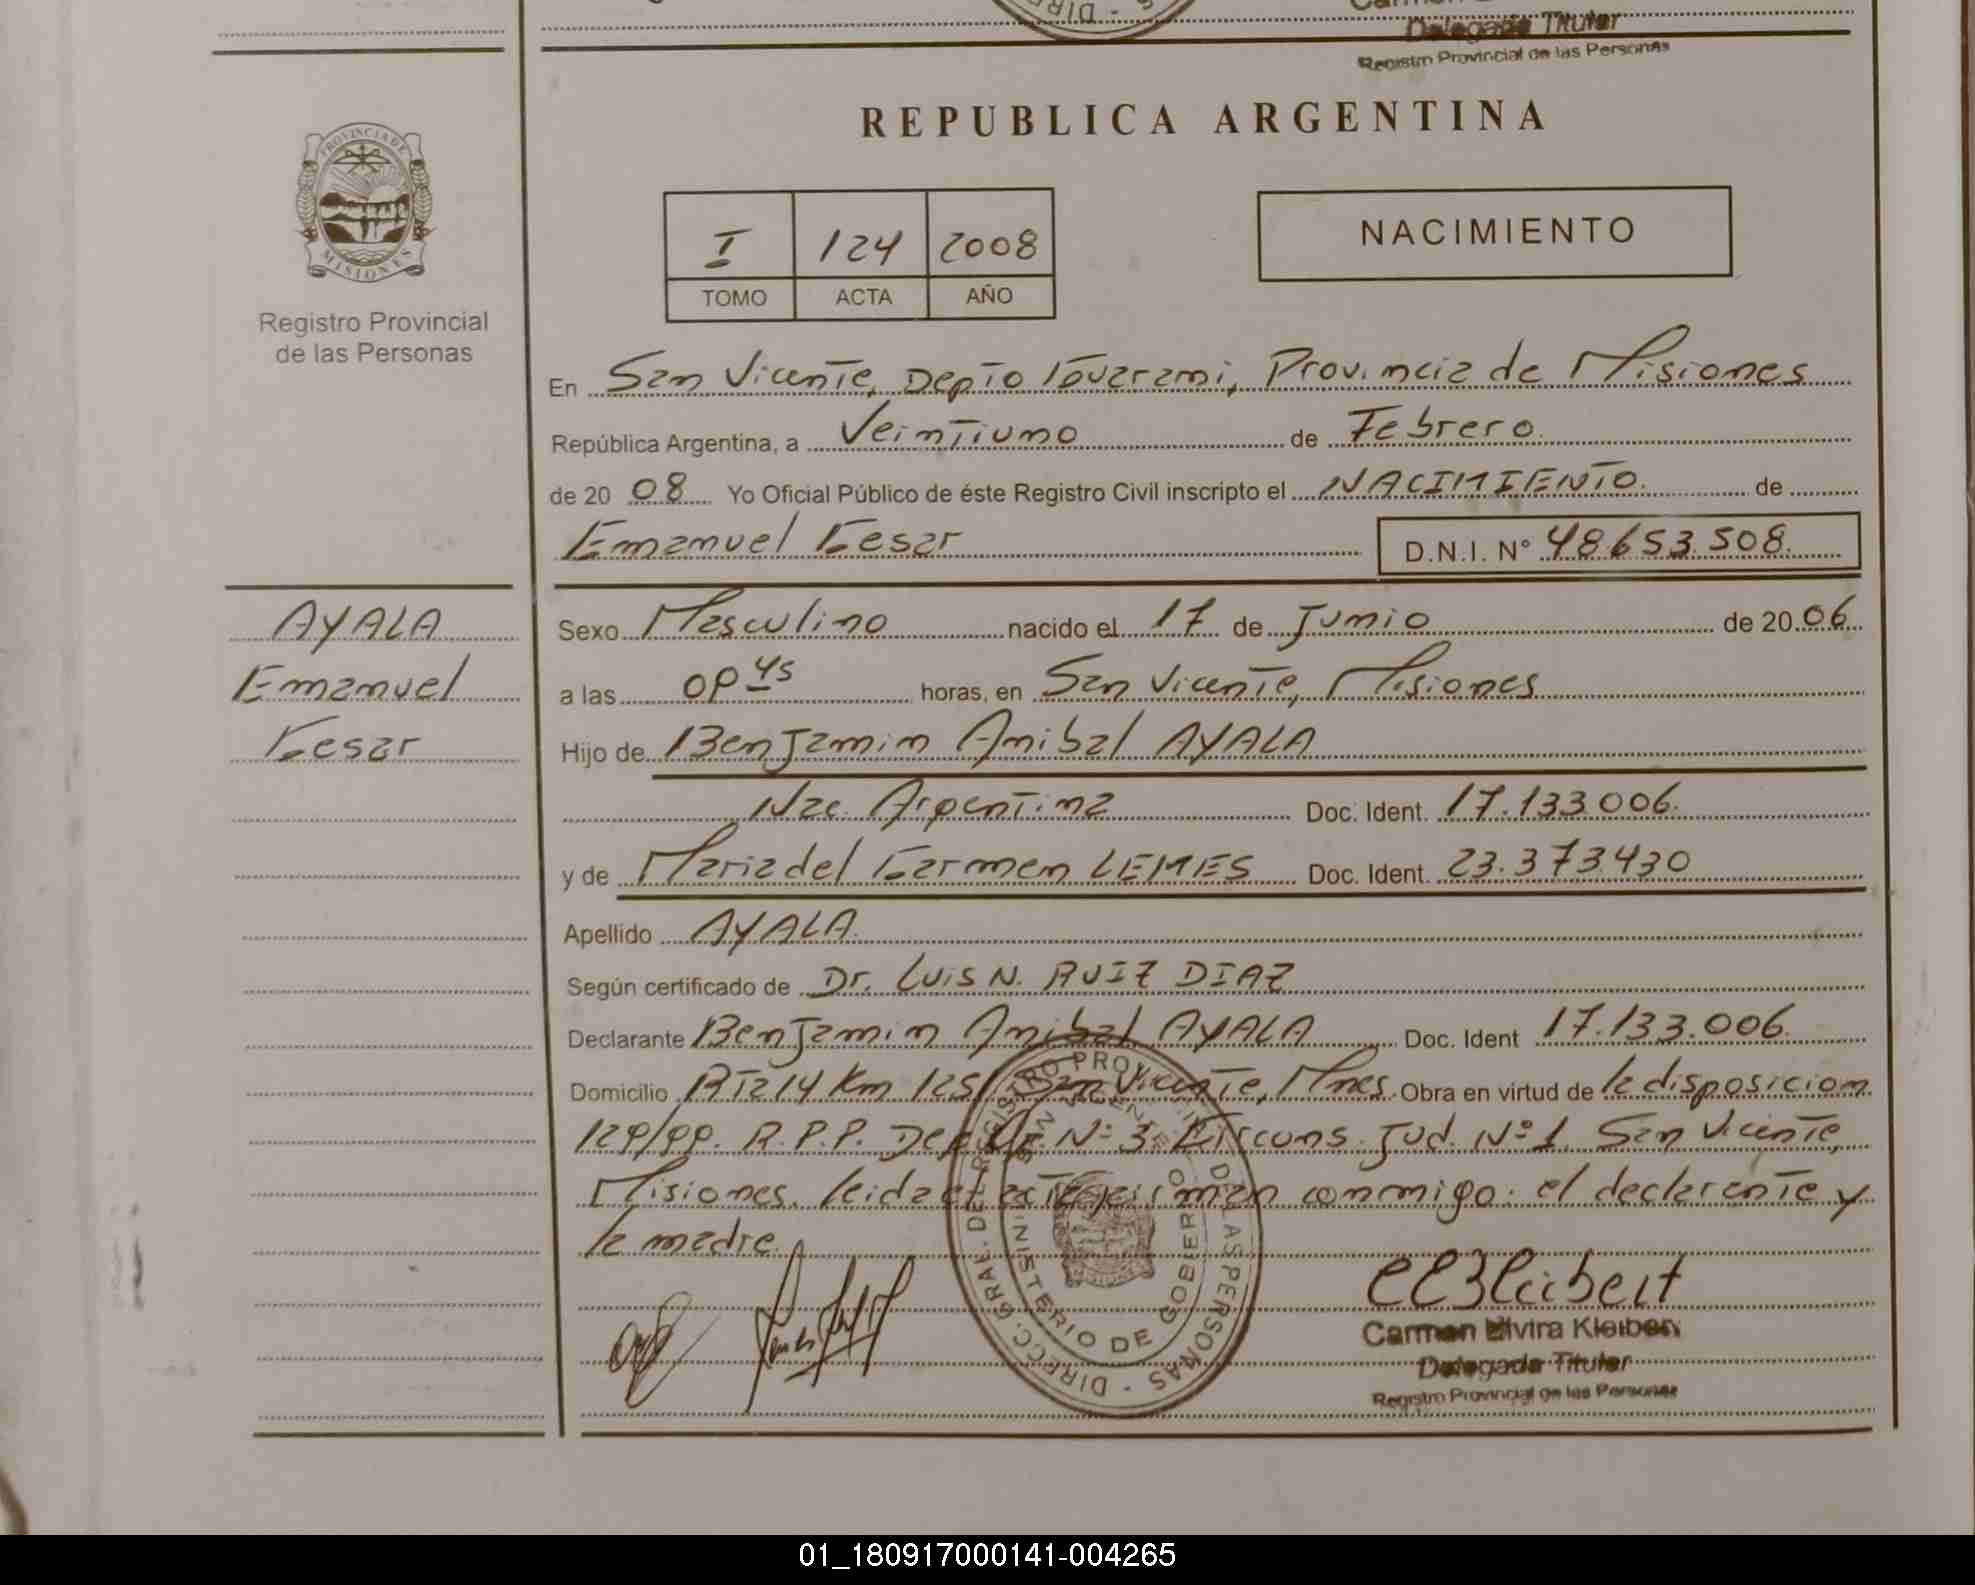 Delegada Titular
Registro Provincial de las Personas
PROVINCIA DE
MISIONES
Registro Provincial
de las Personas
REPUBLICA ARGENTINA
I 124 2008
TOMO ACTA AÑO
NACIMIENTO
En San Vicente, Depto Guarani, Provincia de Misiones
República Argentina, a Veintiuno de Febrero
de 20 08 Yo Oficial Público de éste Registro Civil inscripto el NACIMIENTO de
Emanuel Cesar D.N.I. N° 48653.508
AYALA
Emanuel
Cesar
Sexo Masculino nacido el 17 de Junio de 20 06
a las 09 45 horas, en San Vicente, Misiones
Hijo de Benjamin Anibal AYALA
Nac. Argentina Doc. Ident. 17.133.006
y de Maria del Carmen LEMES Doc. Ident. 23.373.430
Apellido AYALA
Según certificado de Dr. Luis N. RUIZ DIAZ
Declarante Benjamin Anibal AYALA Doc. Ident 17.133.006
Domicilio Rta 14 Km 1251 San Vicente, Mnes. Obra en virtud de la disposicion
129/99. R.P.P. N° 3. Circuns. Jud. N° 1. San Vicente,
Misiones. leida el acta firman conmigo: el declarante y
la madre.
DIRECC. GRAL. DEL REGISTRO PROVINCIAL DE LAS PERSONAS
SAN VICENTE
MINISTERIO DE GOBERNO
CEKleibert
Carmen Elvira Kleibert
Delegada Titular
Registro Provincial de las Personas
01_180917000141-004265